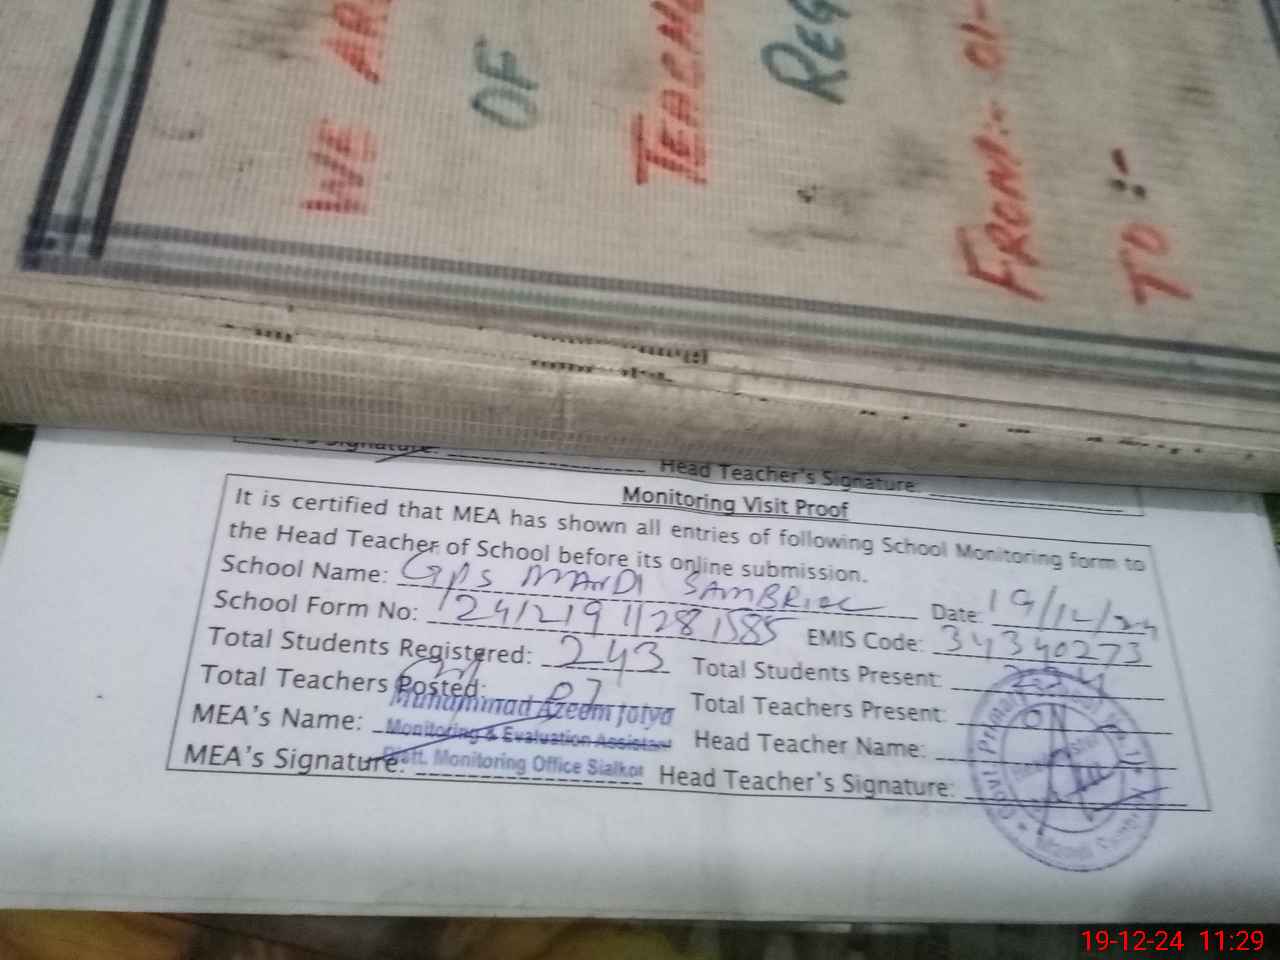 WE AR
OF
TEACH
REG
FROM:- 01-
TO :-
Head Teacher's Signature:
Monitoring Visit Proof
It is certified that MEA has shown all entries of following School Monitoring form to
the Head Teacher of School before its online submission.
School Name: GPS MANDI SAMBRIAL Date: 19/12/24
School Form No: 241219112811585 EMIS Code: 34340273
Total Students Registered: 243 Total Students Present:
Total Teachers Posted: 07 Total Teachers Present:
MEA's Name: Muhammad Azeem Joiya Head Teacher Name:
Monitoring & Evaluation Assistant
MEA's Signature: Distt. Monitoring Office Sialkot Head Teacher's Signature:
19-12-24 11:29